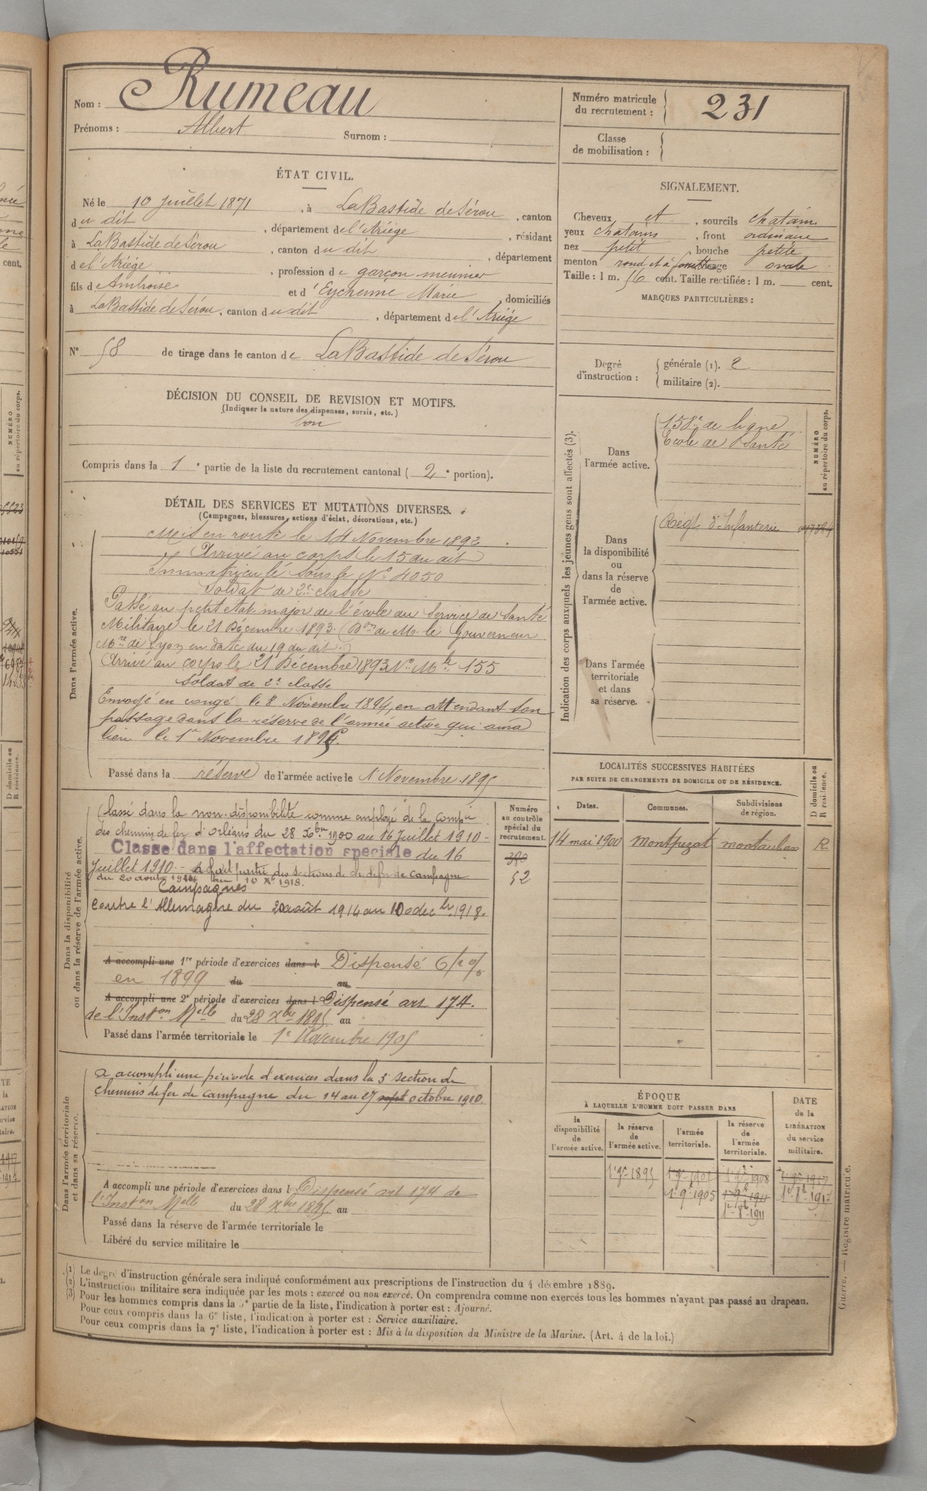 Nom : Rumeau
Prénoms : Albert Surnom :
Numéro matricule
du recrutement : 231
Classe
de mobilisation :
ÉTAT CIVIL.
Né le 10 Juillet 1871, à LaBastide de Sérou, canton
du dit, département de l'Ariège, résidant
à LaBastide de Sérou, canton du dit, département
de l'Ariège, profession de garçon meunier
fils de Ambroise et d'Eychenne Marie, domiciliés
à LaBastide de Sérou, canton du dit, département de l'Ariège
N° 58 de tirage dans le canton de LaBastide de Sérou
SIGNALEMENT.
Cheveux et, sourcils chatains
yeux chatains, front ordinaire
nez petit, bouche petite
menton rond et à fossette visage ovale
Taille : 1 m. 56 cent. Taille rectifiée : 1 m. cent.
MARQUES PARTICULIÈRES :
Degré
d'instruction :
générale (1). 2
militaire (2).
DÉCISION DU CONSEIL DE REVISION ET MOTIFS.
(Indiquer la nature des dispenses, sursis, etc.)
bon
Compris dans la 1e partie de la liste du recrutement cantonal (2e portion).
DÉTAIL DES SERVICES ET MUTATIONS DIVERSES.
(Campagnes, blessures, actions d'éclat, décorations, etc.)
Dans l'armée active.
Mis en route le 14 Novembre 1892
Arrivé au corps le 15 du dit
Immatriculé sous le N° 4050
Soldat de 2e classe
Passé au petit état major de l'école du Service de Santé
Militaire le 21 Décembre 1893 (Don de Mr le Gouverneur
Mre de Lyon en date du 19 du dit)
Arrivé au corps le 21 Décembre 1893 N° Mle 155
Soldat de 2e classe
Envoyé en congé le 8 Novembre 1894, en attendant son
passage dans la réserve de l'armée active qui aura
lieu le 1er Novembre 1895.
Passé dans la réserve de l'armée active le 1 Novembre 1895
Indication des corps auxquels les jeunes gens sont affectés (3).
NUMÉRO
au répertoire du corps.
Dans
l'armée active.
158e de ligne
Ecole de Santé
Dans
la disponibilité
ou
dans la réserve
de
l'armée active.
Régt d'Infanterie
Dans l'armée
territoriale
et dans
sa réserve.
LOCALITÉS SUCCESSIVES HABITÉES
PAR SUITE DE CHANGEMENTS DE DOMICILE OU DE RÉSIDENCE.
Dates. Communes. Subdivisions
de région.
D domicile ou
R résidence.
14 mai 1900 Montpezat montauban R
Dans la disponibilité
ou dans la réserve de l'armée active.
Numéro
au contrôle
spécial du
recrutement.
390
52
Classé dans la non-disponibilité comme employé de la Compie
des chemins de fer d'Orléans du 28 Xbre 1900 au 16 Juillet 1910 -
Classé dans l'affectation spéciale du 16
Juillet 1910 - a fait partie des sections de ch. de fer de campagne
du 20 août 1914 au 10 Xe 1918.
Campagnes
Contre l'Allemagne du 20 août 1914 au 10 décbre 1918.
A accompli une 1re période d'exercices dans l Dispensé
en 1899 du au
A accompli une 2e période d'exercices dans l Dispensé art 174.
de l'Inston Melle du 28 Xbre 1895 au
Passé dans l'armée territoriale le 1er Novembre 1905
Dans l'armée territoriale
et dans sa réserve.
a accompli une période d'exercices dans la 5e section de
chemins de fer de campagne du 14 au 27 sept octobre 1910.
A accompli une période d'exercices dans l Dispensé art 174 de
l'Inston Melle du 28 Xbre 1895 au
Passé dans la réserve de l'armée territoriale le
Libéré du service militaire le
ÉPOQUE
À LAQUELLE L'HOMME DOIT PASSER DANS
la
disponibilité
de
l'armée active.
la réserve
de
l'armée active.
l'armée
territoriale.
la réserve
de
l'armée
territoriale.
DATE
de la
LIBÉRATION
du service
militaire.
1er 9e 1895
1er 9e 1905
(1) Le degré d'instruction générale sera indiqué conformément aux prescriptions de l'instruction du 4 décembre 1889.
(2) L'instruction militaire sera indiquée par les mots : exercé ou non exercé. On comprendra comme non exercés tous les hommes n'ayant pas passé au drapeau.
(3) Pour les hommes compris dans la 5e partie de la liste, l'indication à porter est : Ajourné.
Pour ceux compris dans la 6e liste, l'indication à porter est : Service auxiliaire.
Pour ceux compris dans la 7e liste, l'indication à porter est : Mis à la disposition du Ministre de la Marine. (Art. 4 de la loi.)
Guerre. — Registre matricule.